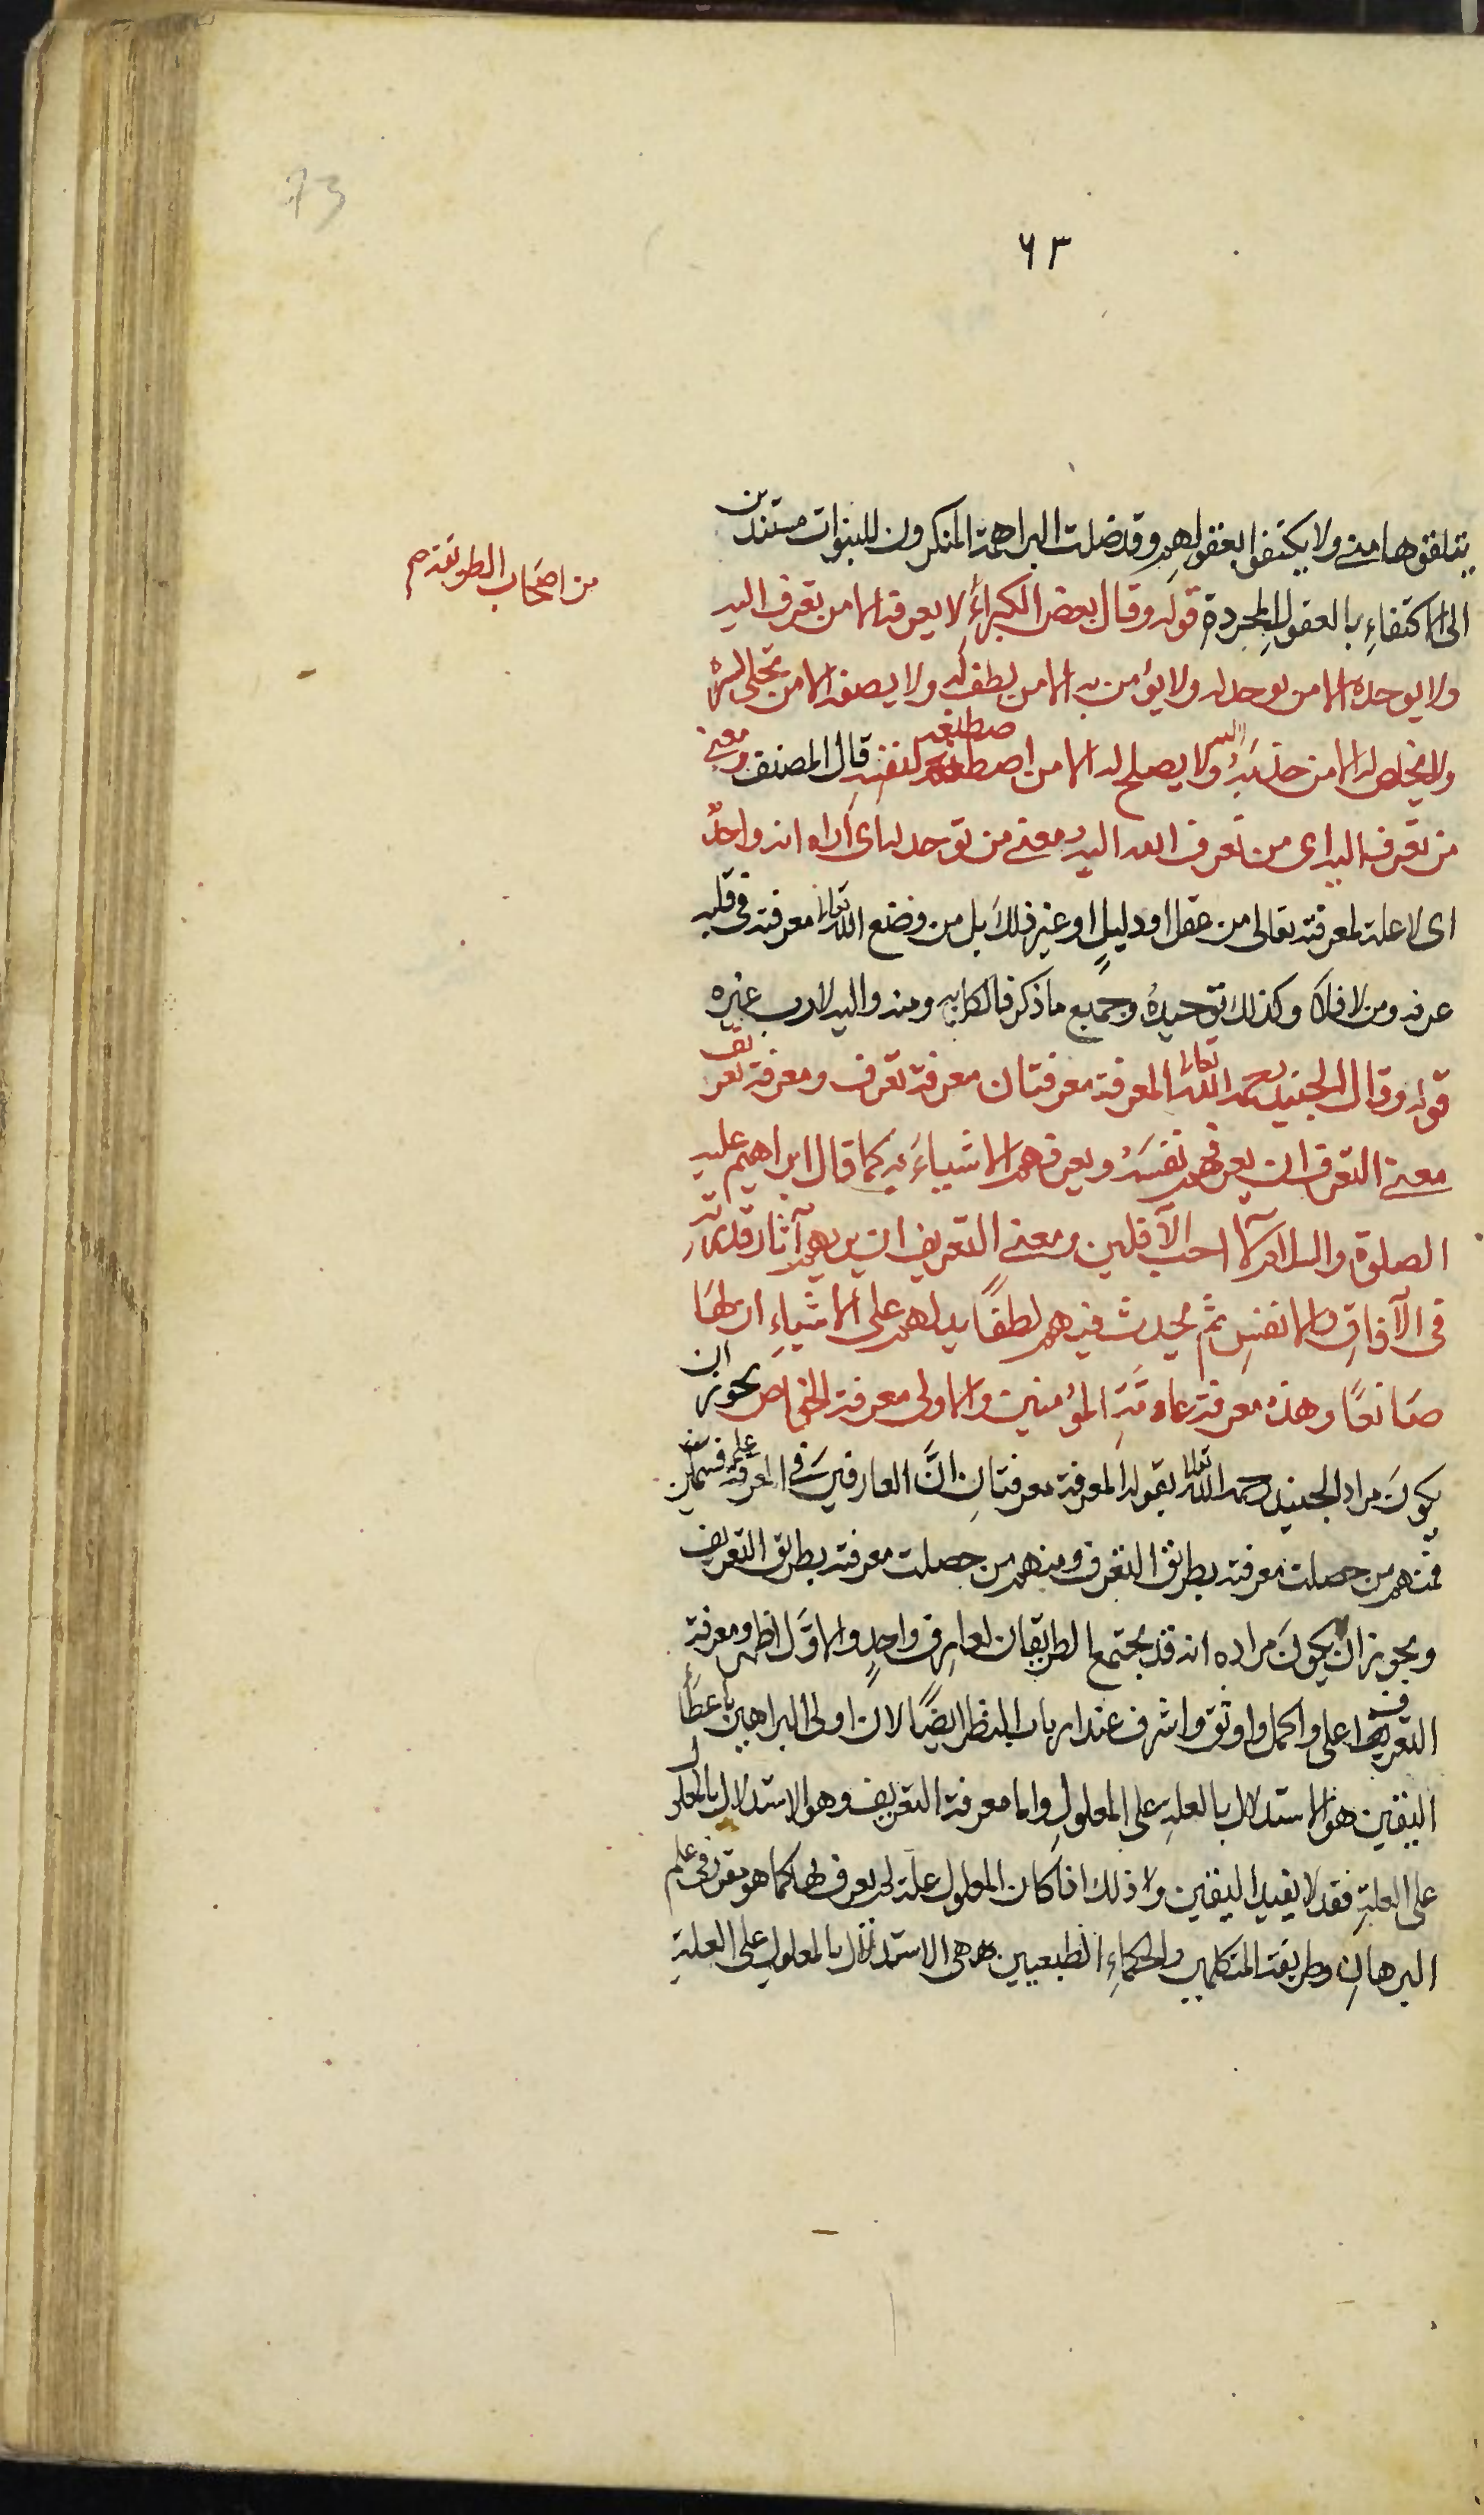 73
٦٣
يتلقوها منه ولا يكتفوا بعقولهم وقد ضلت البراهمة المنكرون للنبوات مستندين
الى الاكتفاء بالعقول المجردة قوله وقال بعض الكبراء لا يعرفه الا من تعرف اليه
من اصحاب الطريقة
ولا يوحده الا من توحد له ولا يؤمن به الا من لطف له ولا يصفه الا من تجلى لسره
ولا يخلص له الا من جذبه اليه ولا يصلح له الا من اصطنعه لنفسه قال المصنف ومعنى
من تعرف اليه اى من تعرف الله اليه ومعنى من توحد له اى اراه انه واحد
اى لا علة لمعرفته تعالى من عقل او دليل او غير ذلك بل من وضع الله تعالى معرفته فى قلبه
عرفه ومن لا فلا وكذلك توحيده وجميع ما ذكر فالكل به ومنه واليه لا رب غيره
قوله وقال الجنيد رحمه الله تعالى المعرفة معرفتان معرفة تعرف ومعرفة تعريف
معنى التعرف ان يعرفهم نفسه ويعرفهم الاشياء به كما قال ابراهيم عليه
الصلوة والسلام لا احب الآفلين ومعنى التعريف ان يريهم آثار قدرته
فى الآفاق والانفس ثم يحدث فيهم لطفا يدلهم على الاشياء ان لها
صانعا وهذه معرفة عامة المؤمنين والاولى معرفة الخواص يجوز ان
يكون مراد الجنيد رحمه الله تعالى بقوله المعرفة معرفتان ان العارفين فى المعرفة على قسمين
فمنهم من حصلت معرفته بطريق التعرف ومنهم من حصلت معرفته بطريق التعريف
ويجوز ان يكون مراده انه قد يجتمع الطريقان لعارف واحد والاول اظهر ومعرفة
التعرف اعلى واكمل واوثق واشرف عند ارباب النظر ايضا لان اولى البراهين باعطاء
اليقين هو الاستدلال بالعلة على المعلول واما معرفة التعريف وهو الاستدلال بالمعلول
على العلة فقد لا يفيد اليقين وذلك اذا كان المعلول علة لم يعرف لها كما هو مقرر فى علم
البرهان وطريقة المتكلمين والحكماء الطبيعيين هى الاستدلال بالمعلول على العلة